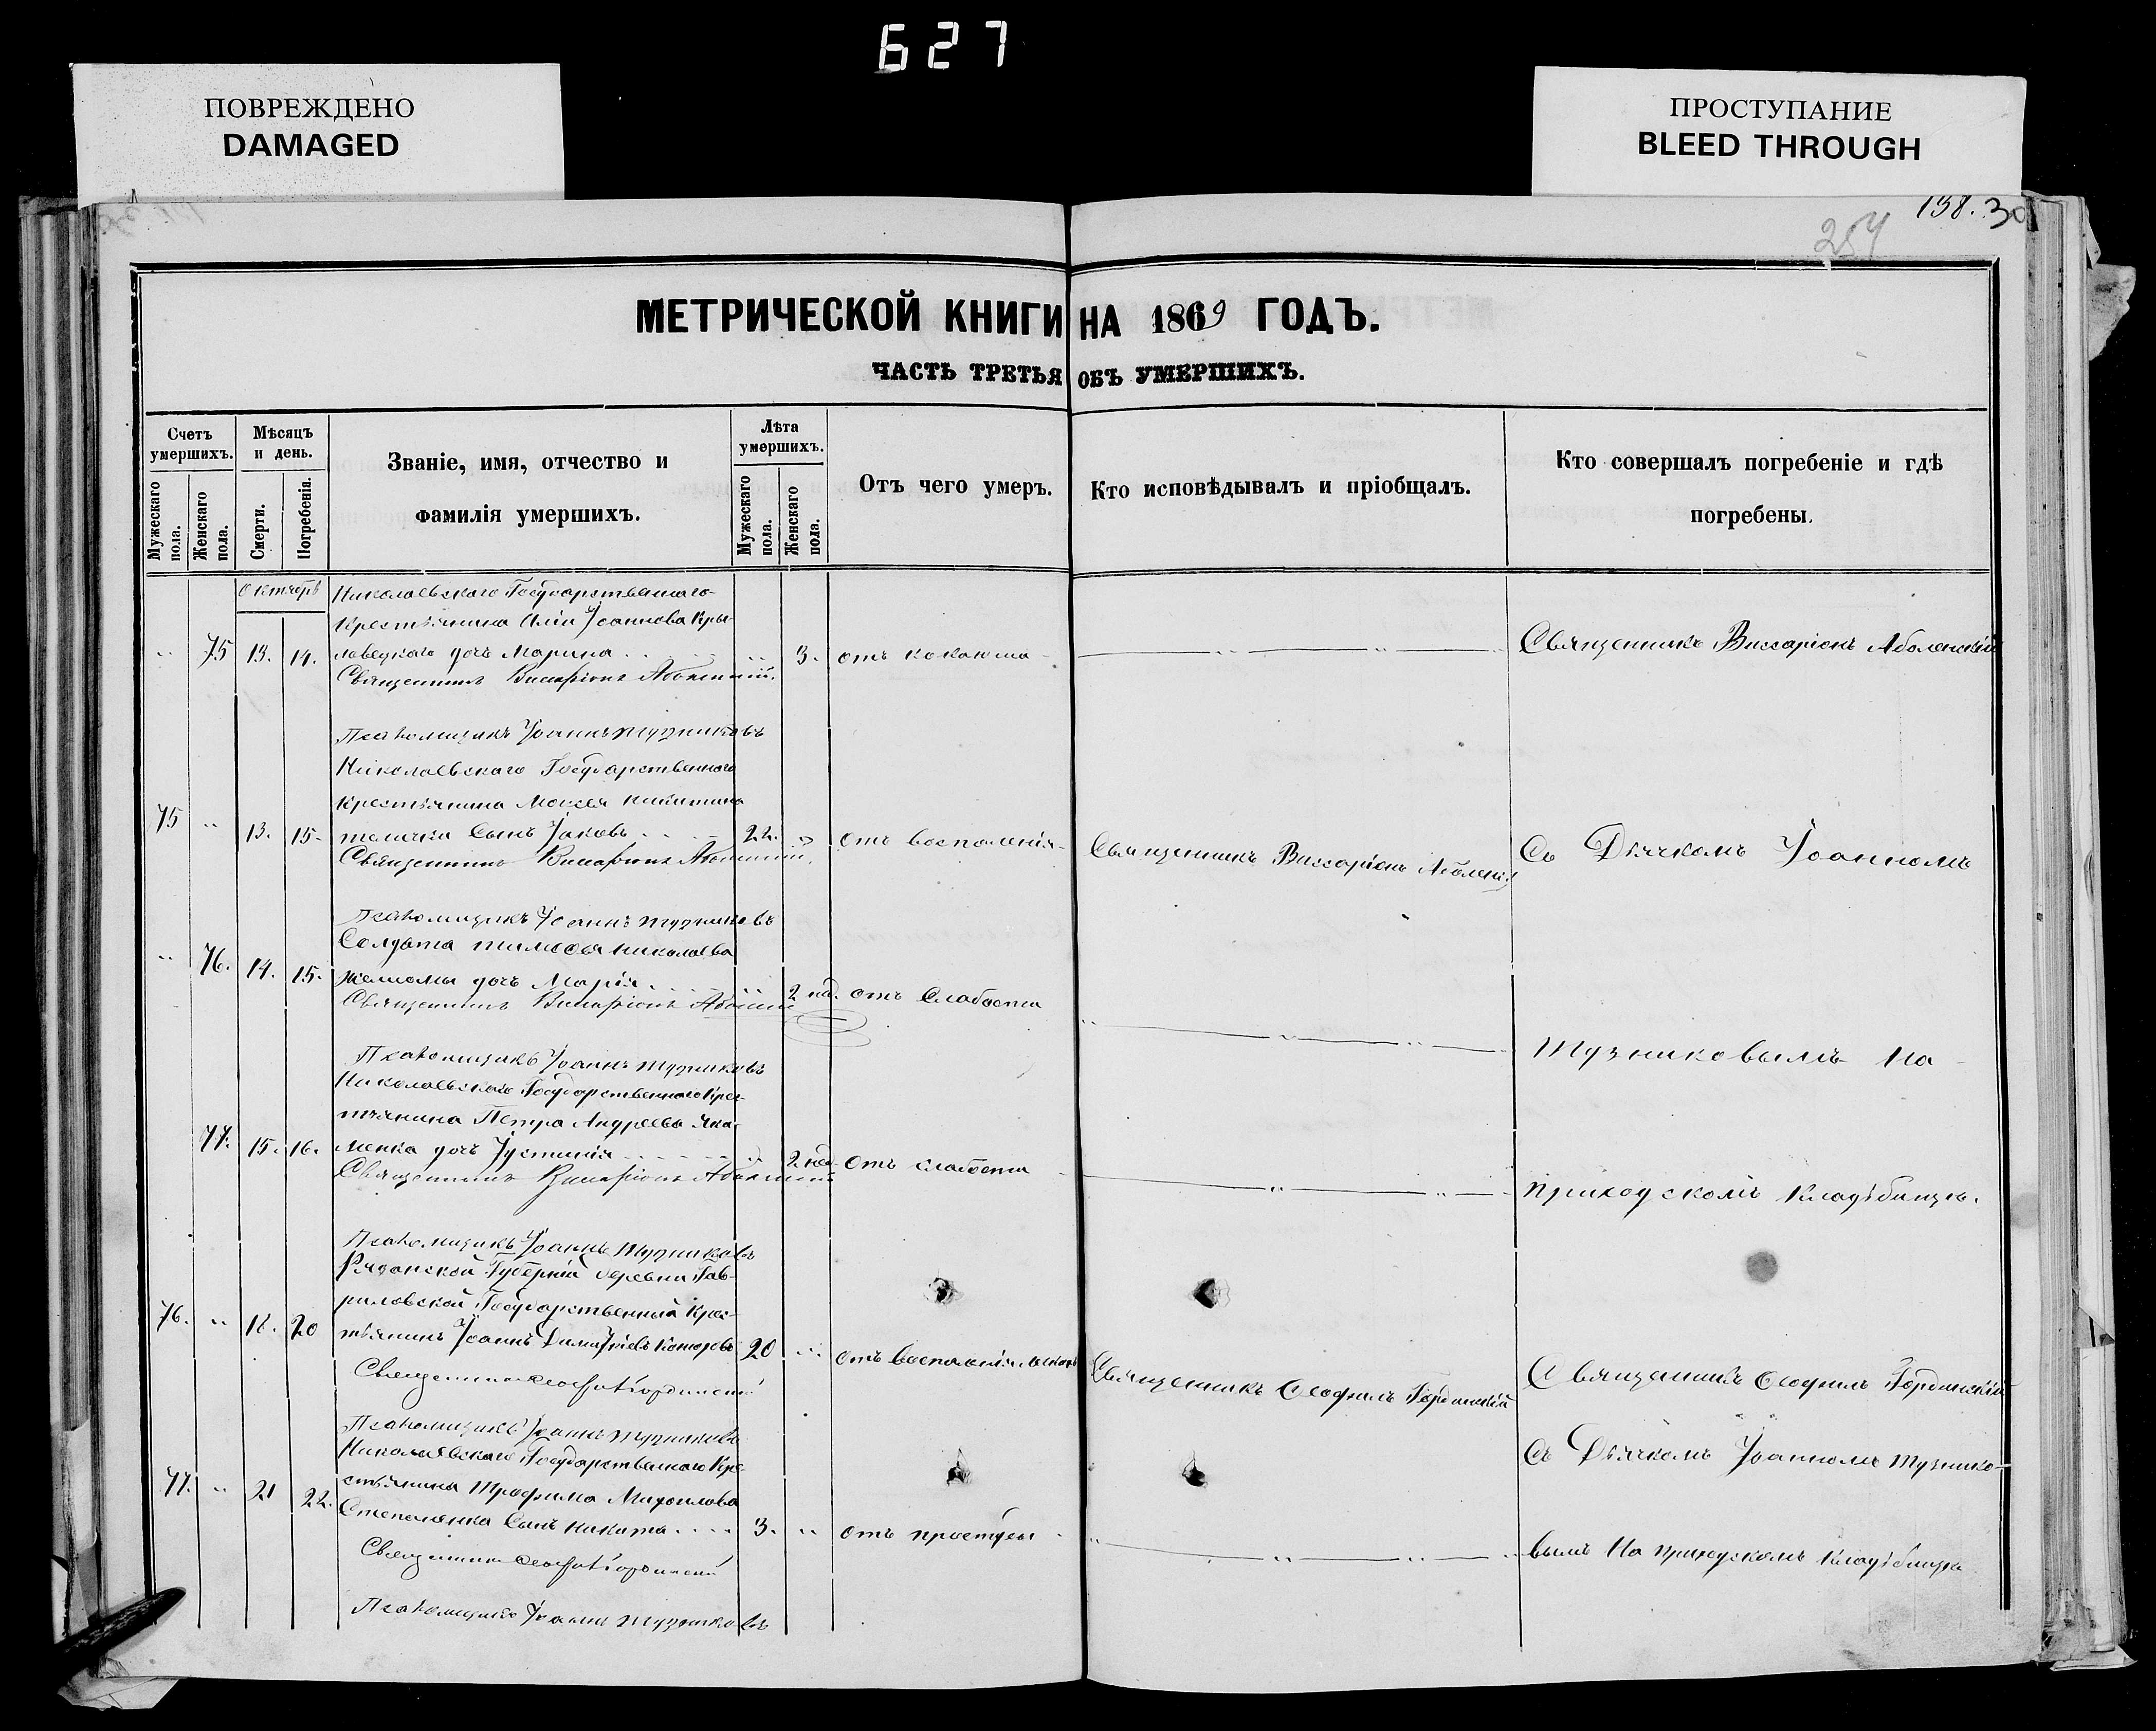 627
ПОВРЕЖДЕНО
DAMAGED
ПРОСТУПАНИЕ
BLEED THROUGH
138. 30
254
МЕТРИЧЕСКОЙ КНИГИ НА 1869 ГОДЪ.
ЧАСТЬ ТРЕТЬЯ ОБЪ УМЕРШИХЪ.
Счетъ умершихъ.
Мужескаго пола.
Женскаго пола.
Мѣсяцъ и день.
Смерти.
Погребенія.
Званіе, имя, отчество и
фамилія умершихъ.
Лѣта умершихъ.
Мужескаго пола.
Женскаго пола.
Отъ чего умеръ.
Кто исповѣдывалъ и пріобщалъ.
Кто совершалъ погребеніе и гдѣ
погребены.
Октябрь
Николаевскаго Государственнаго
Крестьянина Іоаннова Кры-
75 13. 14. ловецкаго дочь Марина 3. отъ
Священникъ Виссаріонъ Аболенскій
Священникъ Виссаріонъ Аболенскій
Псаломщикъ Іоаннъ Тузниковъ
Николаевскаго Государственнаго
Крестьянина Моисея Никитина
75 13. 15. сынъ Іаковъ 22. отъ воспаленія
Священникъ Виссаріонъ Аболенскій
Священникъ Виссаріонъ Аболенскій
Съ Дьячкомъ Іоанномъ
Псаломщикъ Іоаннъ Тузниковъ
Солдата Николаева
76. 14. 15. дочь Марія 2 нед. отъ слабости
Священникъ Виссаріонъ Аболенскій
Тузниковымъ на
Псаломщикъ Іоаннъ Тузниковъ
Николаевскаго Государственнаго Крес-
тьянина Петра Андреева Яко-
77. 15. 16. менка дочь Іустинія 2 нед. отъ слабости
Священникъ Виссаріонъ Аболенскій
приходскомъ кладбищѣ.
Псаломщикъ Іоаннъ Тузниковъ
Рязанской Губерніи деревни Гав-
риловской Государственный крес-
76. 18. 20 тьянинъ Іоаннъ Димитріевъ 20 отъ воспаленія
Священникъ Ѳеофилъ Гординскій
Священникъ Ѳеофилъ Гординскій
Священникъ Ѳеофилъ Гординскій
Псаломщикъ Іоаннъ Тузниковъ
Николаевскаго Государственнаго Кре-
Съ Дьячкомъ Іоанномъ Тузнико-
77. 21 22. стьянина Трофима Михаилова
Степаненка сынъ Никита 3. отъ простуды
Священникъ Ѳеофилъ Гординскій
вымъ на приходскомъ кладбищѣ
Псаломщикъ Іоаннъ Тузниковъ